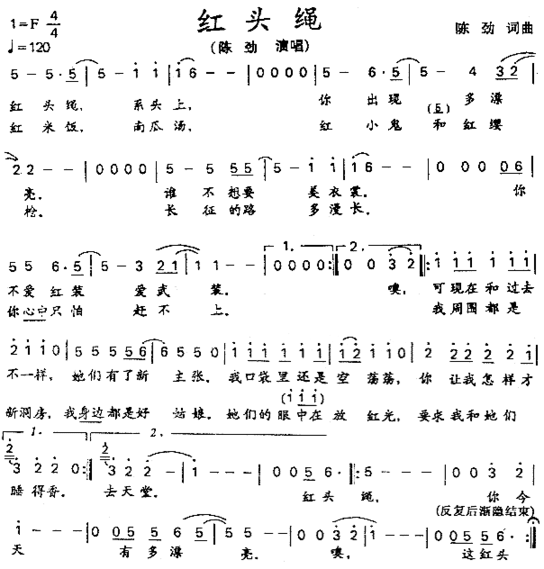 1=F 4/4
♩=120
红头绳
(陈 劲 演唱)
陈 劲 词曲
5 - 5·5 | 5 - i i | i 6 - - | 0 0 0 0 | 5 - 6·5 | 5 - 4 3 2 |
红 头 绳, 系 头 上, 你 出 现 多 漂
(5)
红 米 饭, 南 瓜 汤, 红 小 鬼 和 红 缨
2 2 - - | 0 0 0 0 | 5 - 5 5 5 | 5 - i i | i 6 - - | 0 0 0 0 | 0 0 0 0 6 |
亮。 谁 不 想 要 美 衣 裳。 你
枪。 长 征 的 路 多 漫 长。
5 5 6·5 | 5 - 3 2 1 | 1 1 - - | 1. 0 0 0 0 :| 2. 0 0 3 2 |: i i i i i i |
不 爱 红 装 爱 武 装。 噢, 可 现 在 和 过 去
你 心 中 只 怕 赶 不 上。 我 周 围 都 是
2 i i 0 | 5 5 5 5 5 6 | 6 5 5 0 | i i i i i i i | i 2 i i 0 | 2 2 2 2 2 i |
不 一 样, 她 们 有 了 新 主 张。 我 口 袋 里 还 是 空 荡 荡, 你 让 我 怎 样 才
(i i i)
新 洞 房, 我 身 边 都 是 好 姑 娘。 她 们 的 眼 中 在 放 红 光, 要 求 我 和 她 们
1. 2.
3 2 2 0 :| 3 2 2 - | i - - - | 0 0 5 6· :| 5 - - - | 0 0 3 2 |
睡 得 香。 去 天 堂。 红 头 绳, 你 今
(反复后渐隐结束)
i - - - | 0 0 5 5 6 5 | 5 5 - - | 0 0 3 2 | i - - - | 0 0 5 5 6· :|
天 有 多 漂 亮。 噢, 这 红 头